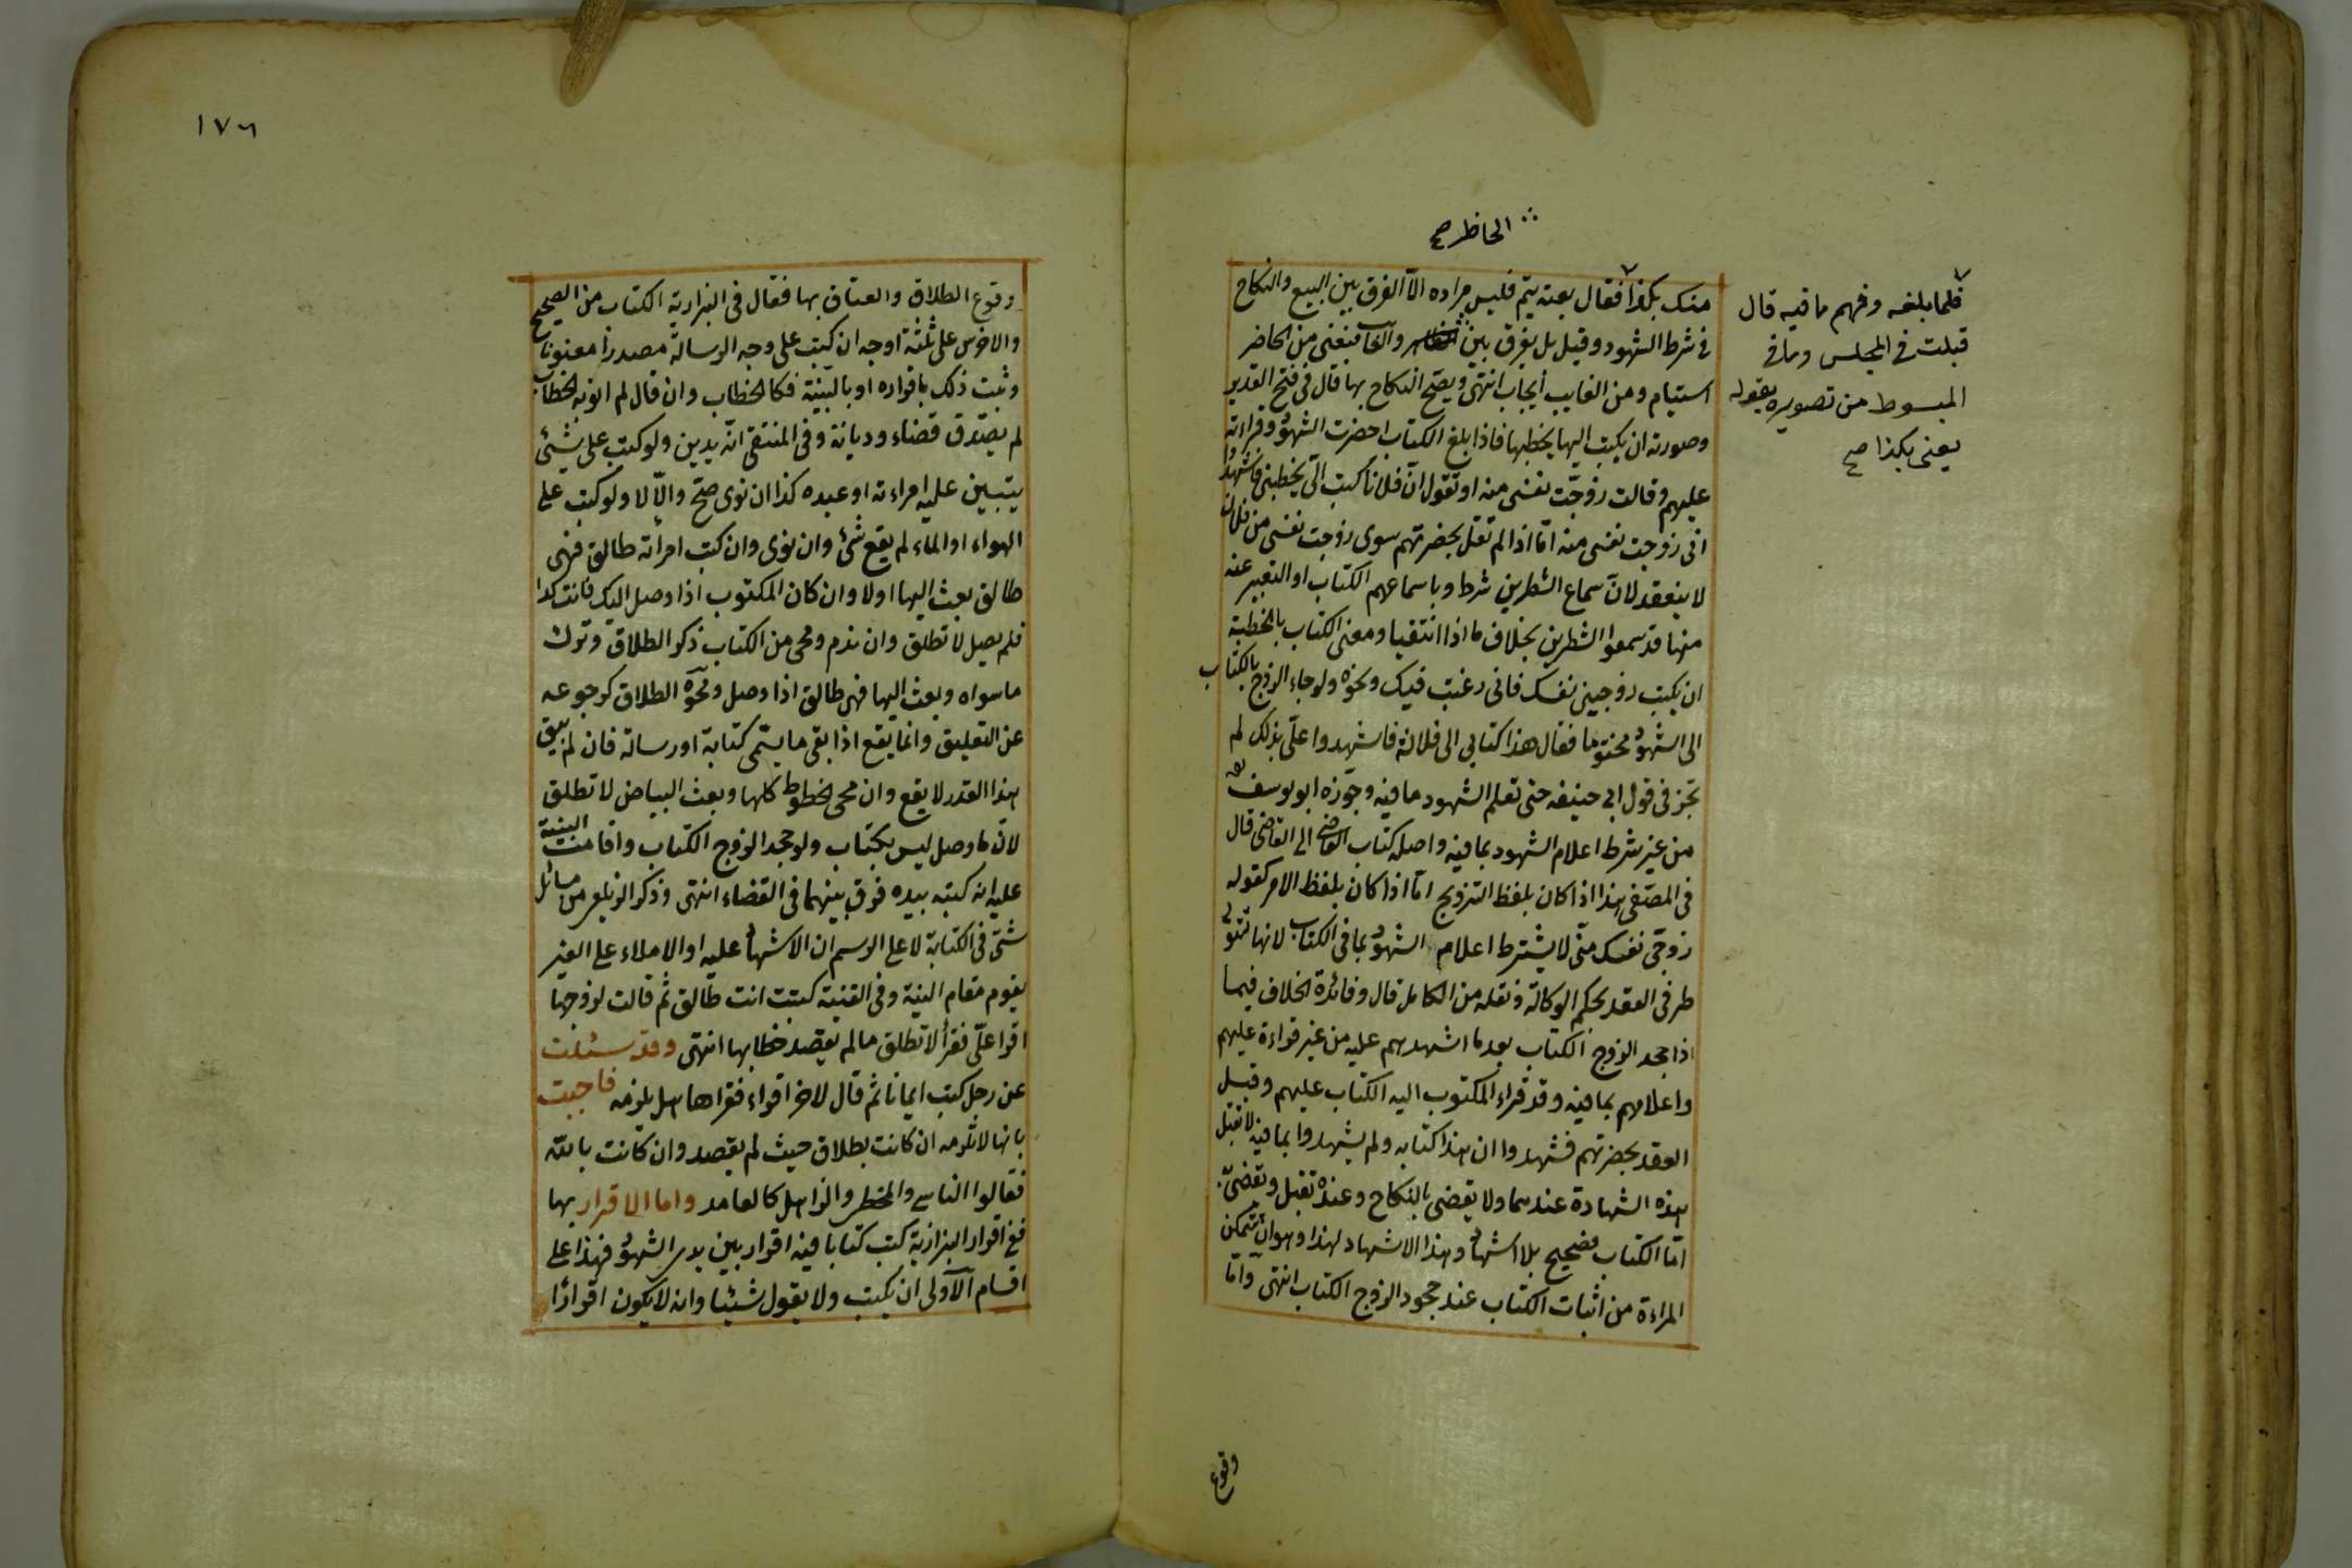 الحاظر صح
منك بكذا فقال بعته يتم فليس مراده الا الفرق بين البيع والنكاح
في شرط الشهود وقيل بل يفرق بين الحاضر والغايب فبعني من الحاضر
استيام ومن الغايب ايجاب انتهى ويصح النكاح بها قال في فتح القدير
وصورته ان يكتب اليها يخطبها فاذا بلغ الكتاب احضرت الشهود وقراته
عليهم وقالت زوجت نفسى منه او تقول ان فلانا كتب الى يخطبنى فاشهدوا
انى زوجت نفسى منه اما اذا لم تقل بحضرتهم سوى زوجت نفسى من فلان
لا ينعقد لان سماع الشطرين شرط وباسماعهم الكتاب او التعبير عنه
منها قد سمعوا الشطرين بخلاف ما اذا انتفيا ومعنى الكتاب بالخطبة
ان يكتب زوجينى نفسك فانى رغبت فيك ونحوه ولو جاء الزوج بالكتاب
الى الشهود مختوما فقال هذا كتابي الى فلانة فاشهدوا على بذلك لم
تجز في قول ابي حنيفه حتى تعلم الشهود ما فيه وجوزه ابو يوسف
من غير شرط اعلام الشهود بما فيه واصله كتاب القاضي الى القاضى قال
في المصفى هذا اذا كان بلفظ التزويج اما اذا كان بلفظ الامر كقوله
زوجى نفسك منى لا يشترط اعلام الشهود بما في الكتاب لانها تتولى
طرفى العقد بحكم الوكالة ونقله من الكامل قال وفائدة الخلاف فيما
اذا جحد الزوج الكتاب بعد ما اشهدهم عليه من غير قراءة عليهم
واعلامهم بما فيه وقد قراء المكتوب اليه الكتاب عليهم وقبل
العقد بحضرتهم فشهدوا ان هذا كتابه ولم يشهدوا بما فيه لا تقبل
هذه الشهادة عندهما ولا يقضى بالنكاح وعنده تقبل ويقضى به
اما الكتاب فصحيح بلا اشهاد وهذا الاشهاد لهذا وهو ان تتمكن
المراءة من اثبات الكتاب عند جحود الزوج الكتاب انتهى واما
فلما بلغه وفهم ما فيه قال
قبلت في المجلس وما في
المبسوط من تصويره بقوله
بعنى بكذا صح
وقوع
١٧٦
وقوع الطلاق والعتاق بها فقال في البزازية الكتاب من الصحيح
والاخرس على ثلثة اوجه ان كتب على وجه الرسالة مصدرا معنونا
وثبت ذلك باقراره او بالبينة فكالخطاب وان قال لم انو به الخطاب
لم يصدق قضاء وديانة وفي المنتقى انه يدين ولو كتب على شيئ
يتبين عليه امراءته او عبده كذا ان نوى صح والا لا ولو كتب على
الهواء او الماء لم يقع شئ وان نوى وان كتب امراته طالق فهى
طالق بعث اليها اولا وان كان المكتوب اذا وصل اليك فانت كذا
فلم يصل لا تطلق وان ندم ومحى من الكتاب ذكر الطلاق وترك
ما سواه وبعث اليها فهى طالق اذا وصل ومحوه الطلاق كرجوعه
عن التعليق وانما يقع اذا بقى ما يسمى كتابة او رسالة فان لم يبق
هذا القدر لا يقع وان محى الخطوط كلها وبعث البياض لا تطلق
لان ما وصل ليس بكتاب ولو جحد الزوج الكتاب واقامت البينة
عليه انه كتبه بيده فرق بينهما في القضاء انتهى وذكر الزيلعى من مسائل
شتى في الكتابة لا على الرسم ان الاشهاد عليه او الاملاء على الغير
يقوم مقام البينة وفي القنية كتبت انت طالق ثم قالت لزوجها
اقرا على فقرأ لا تطلق ما لم يقصد خطابها انتهى وقد سئلت
عن رجل كتب ايمانا ثم قال لاخر اقراء فقراها هل يلزمه فاجبت
بانها لا تلزمه ان كانت بطلاق حيث لم يقصد وان كانت بالله
فقالوا الناسى والمخطر والذاهل كالعامد واما الاقرار بها
ففي اقرار البزازية كتب كتابا فيه اقرار بين يدى الشهود فهذا على
اقسام الاولى ان يكتب ولا يقول شيئا وانه لا يكون اقرارا